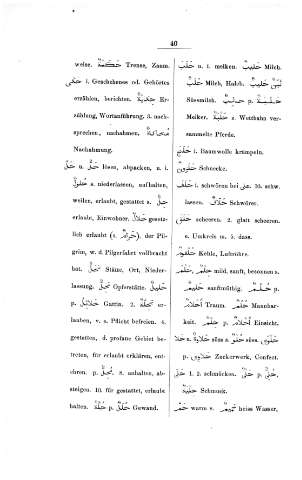 40
weise. حَكَمَة Trense, Zaum.
حكى i. Geschehenes od. Gehörtes
erzählen, berichten. حِكَايَة Er-
zählung, Wortanführung. 3. nach-
sprechen, nachahmen. مُحَاكَاة
Nachahmung.
حَلَّ حَلّ u lösen, abpacken, u. i.
حُلُول s. niederlassen, aufhalten,
weilen, erlaubt, gestattet s. حِلّ
erlaubt, Einwohner. حَلَال gestatt-
lich erlaubt (s. حَرَام), der Pil-
grim, w. d. Pilgerfahrt vollbracht
hat. مَحَلّ Stätte, Ort, Nieder-
lassung. مَحِلّ Opferstätte. حَلِيلَة
p. حَلَائِل Gattin. 2. تَحِلَّة er-
lauben, v. s. Pflicht befreien. 4.
gestatten, d. profane Gebiet be-
treten, für erlaubt erklären, ent-
ehren. p. مُحِلّ. 8. anhalten, ab-
steigen. 10. für gestattet, erlaubt
halten. حُلَّة p. حُلَل Gewand.
حَلَب u. i. melken. حَلِيب Milch.
لَبَن حَلِيب Milch, Halch.
Süssmilch. حَلَّاب p. حَلَبَة
Melker. حَلْبَة s. Wettbahn ver-
sammelte Pferde.
حَلَج i. Baumwolle krämpeln.
حَلَزُون Schnecke.
حَلَف i. schwören bei على. 10. schw.
lassen. حَلَّاف Schwörer.
حَلَق scheeren. 2. glatt scheeren.
s. Umkreis m. 5. dass.
حُلْقُوم Kehle, Luftröhre.
حَلُم, حِلْم mild, sanft, besonnen s.
حَلِيم sanftmütig. حُلُم p.
أَحْلَام Traum. حُلُم Mannbar-
keit. حِلْم p. أَحْلَام Einsicht.
حلا حَلَاوَة u süss s. حُلْو süss. حَلْوَى
p. حَلَاوَى Zuckerwerk, Confect.
حَلَى i. 2. schmücken. حَلْي p. حُلِيّ,
حِلْيَة Schmuck.
حَمّ warm s. حَمِيم heiss Wasser,